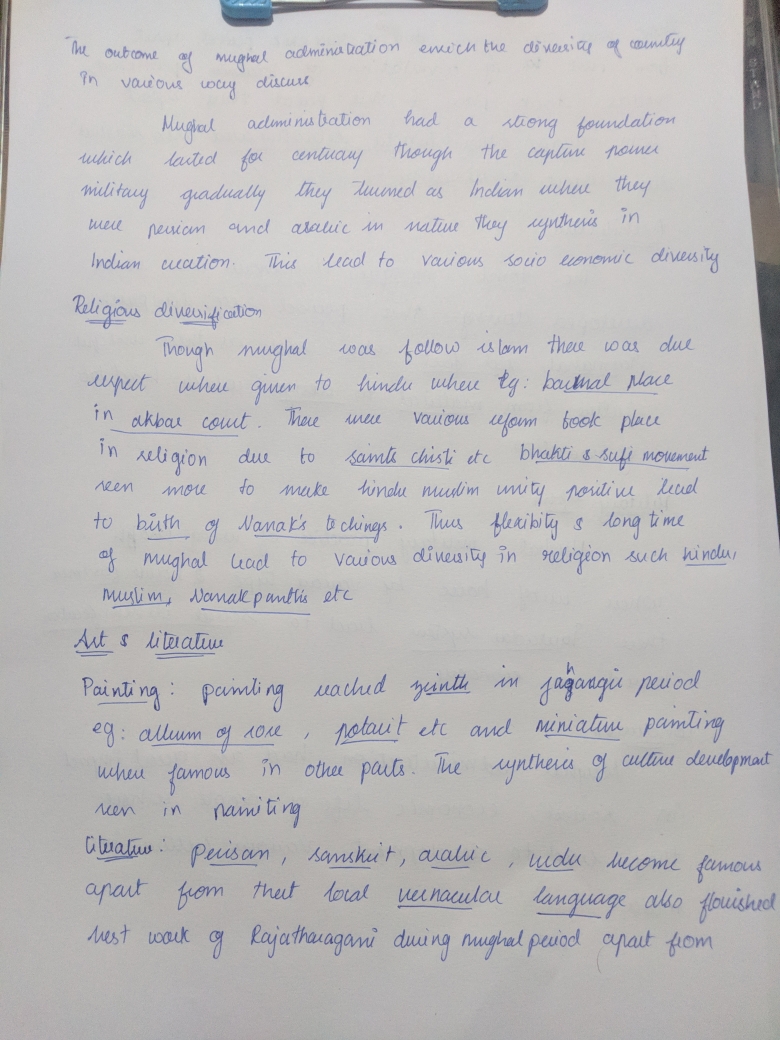 The outcome of mughal administration enrich the diversity of country
in various way discuss
Mughal administration had a strong foundation
which lasted for centuary though the capture power
military gradually they turned as Indian where they
were persian and arabic in native they synthesis in
Indian creation. This lead to various socio economic diversity
Religious diversification
Though mughal was follow islam there was due
respect where given to hindu where Eg: place
in akbar court. There were various reform took place
in religion due to saints chisti etc bhakti & sufi movement
seen more to make hindu muslim unity positive lead
to birth of Nanak's techings. Thus flexibity & long time
of mughal lead to various diversity in religion such hindu,
muslim, Nanak panthis etc
Art & literature
Painting: painting reached zeinth in period
eg: album of rose, potarit etc and miniature painting
where famous in other parts. The synthesis of culture development
seen in painiting
Literature: Perisan, sanskrit, arabic, urdu become famous
apart from that local vernacular language also flourished
best work of Rajatharagani during mughal period apart from